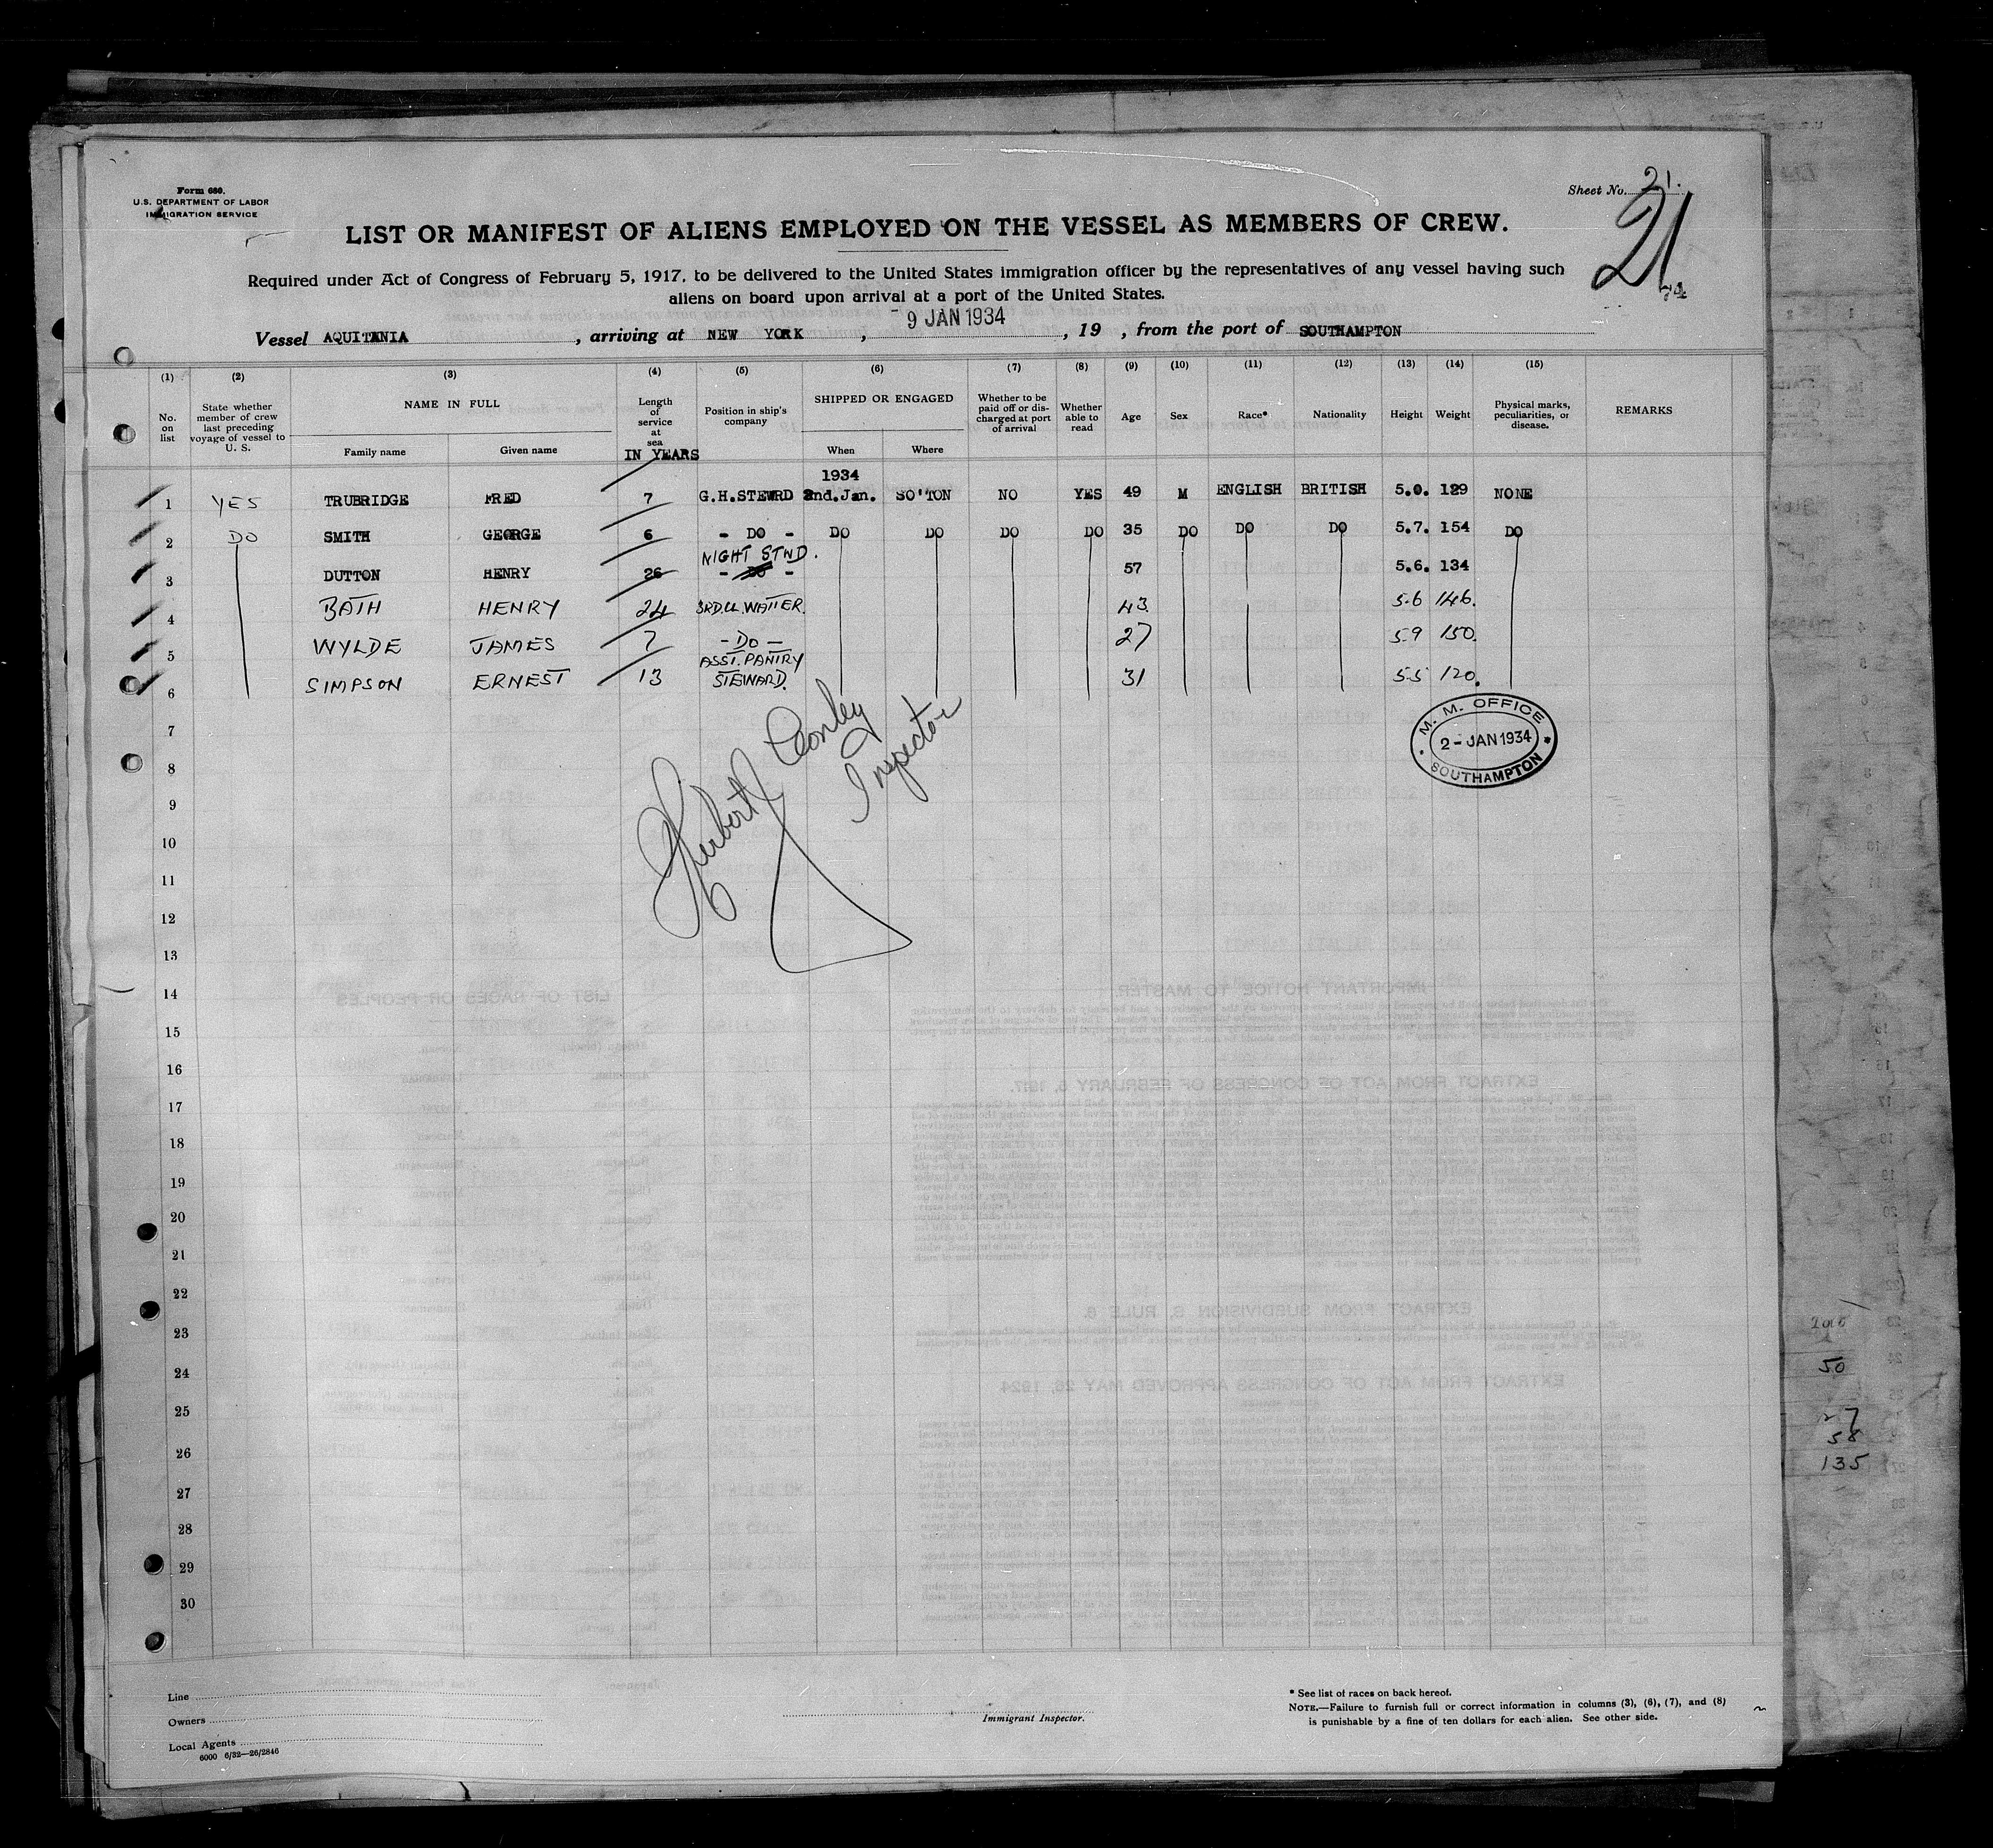 Form 680.
U.S. DEPARTMENT OF LABOR
IMMIGRATION SERVICE
Sheet No. 21.
21
74
LIST OR MANIFEST OF ALIENS EMPLOYED ON THE VESSEL AS MEMBERS OF CREW.
Required under Act of Congress of February 5, 1917, to be delivered to the United States immigration officer by the representatives of any vessel having such
aliens on board upon arrival at a port of the United States.
Vessel AQUITANIA, arriving at NEW YORK, - 9 JAN 1934, 19 , from the port of SOUTHAMPTON
(1) (2) (3) (4) (5) (6) (7) (8) (9) (10) (11) (12) (13) (14) (15)
No. on list
State whether member of crew last preceding voyage of vessel to U. S.
NAME IN FULL
Family name
Given name
Length of service at sea
IN YEARS
Position in ship's company
SHIPPED OR ENGAGED
When
Where
Whether to be paid off or discharged at port of arrival
Whether able to read
Age
Sex
Race*
Nationality
Height
Weight
Physical marks, peculiarities, or disease.
REMARKS
1934
1 YES TRUBRIDGE FRED 7 G.H.STEWRD 2nd.Jan. SO'TON NO YES 49 M ENGLISH BRITISH 5.0. 129 NONE
2 DO SMITH GEORGE 6 - DO - DO DO DO DO 35 DO DO DO 5.7. 154 DO
NIGHT STWD.
3 DUTTON HENRY 26 - DO - 57 5.6. 134
4 BATH HENRY 24 3RD.CL.WAITER. 43 5.6 146.
5 WYLDE JAMES 7 - DO - 27 5.9 150.
ASST. PANTRY
6 SIMPSON ERNEST 13 STEWARD. 31 5.5 120.
Inspector
M. M. OFFICE
2 - JAN 1934
SOUTHAMPTON
7
8
9
10
11
12
13
14
15
16
17
18
19
20
21
22
23
24
25
26
27
28
29
30
50
58
135
Line
Owners
Local Agents
6000 6/32—26/2846
Immigrant Inspector.
* See list of races on back hereof.
NOTE.—Failure to furnish full or correct information in columns (3), (6), (7), and (8)
is punishable by a fine of ten dollars for each alien. See other side.